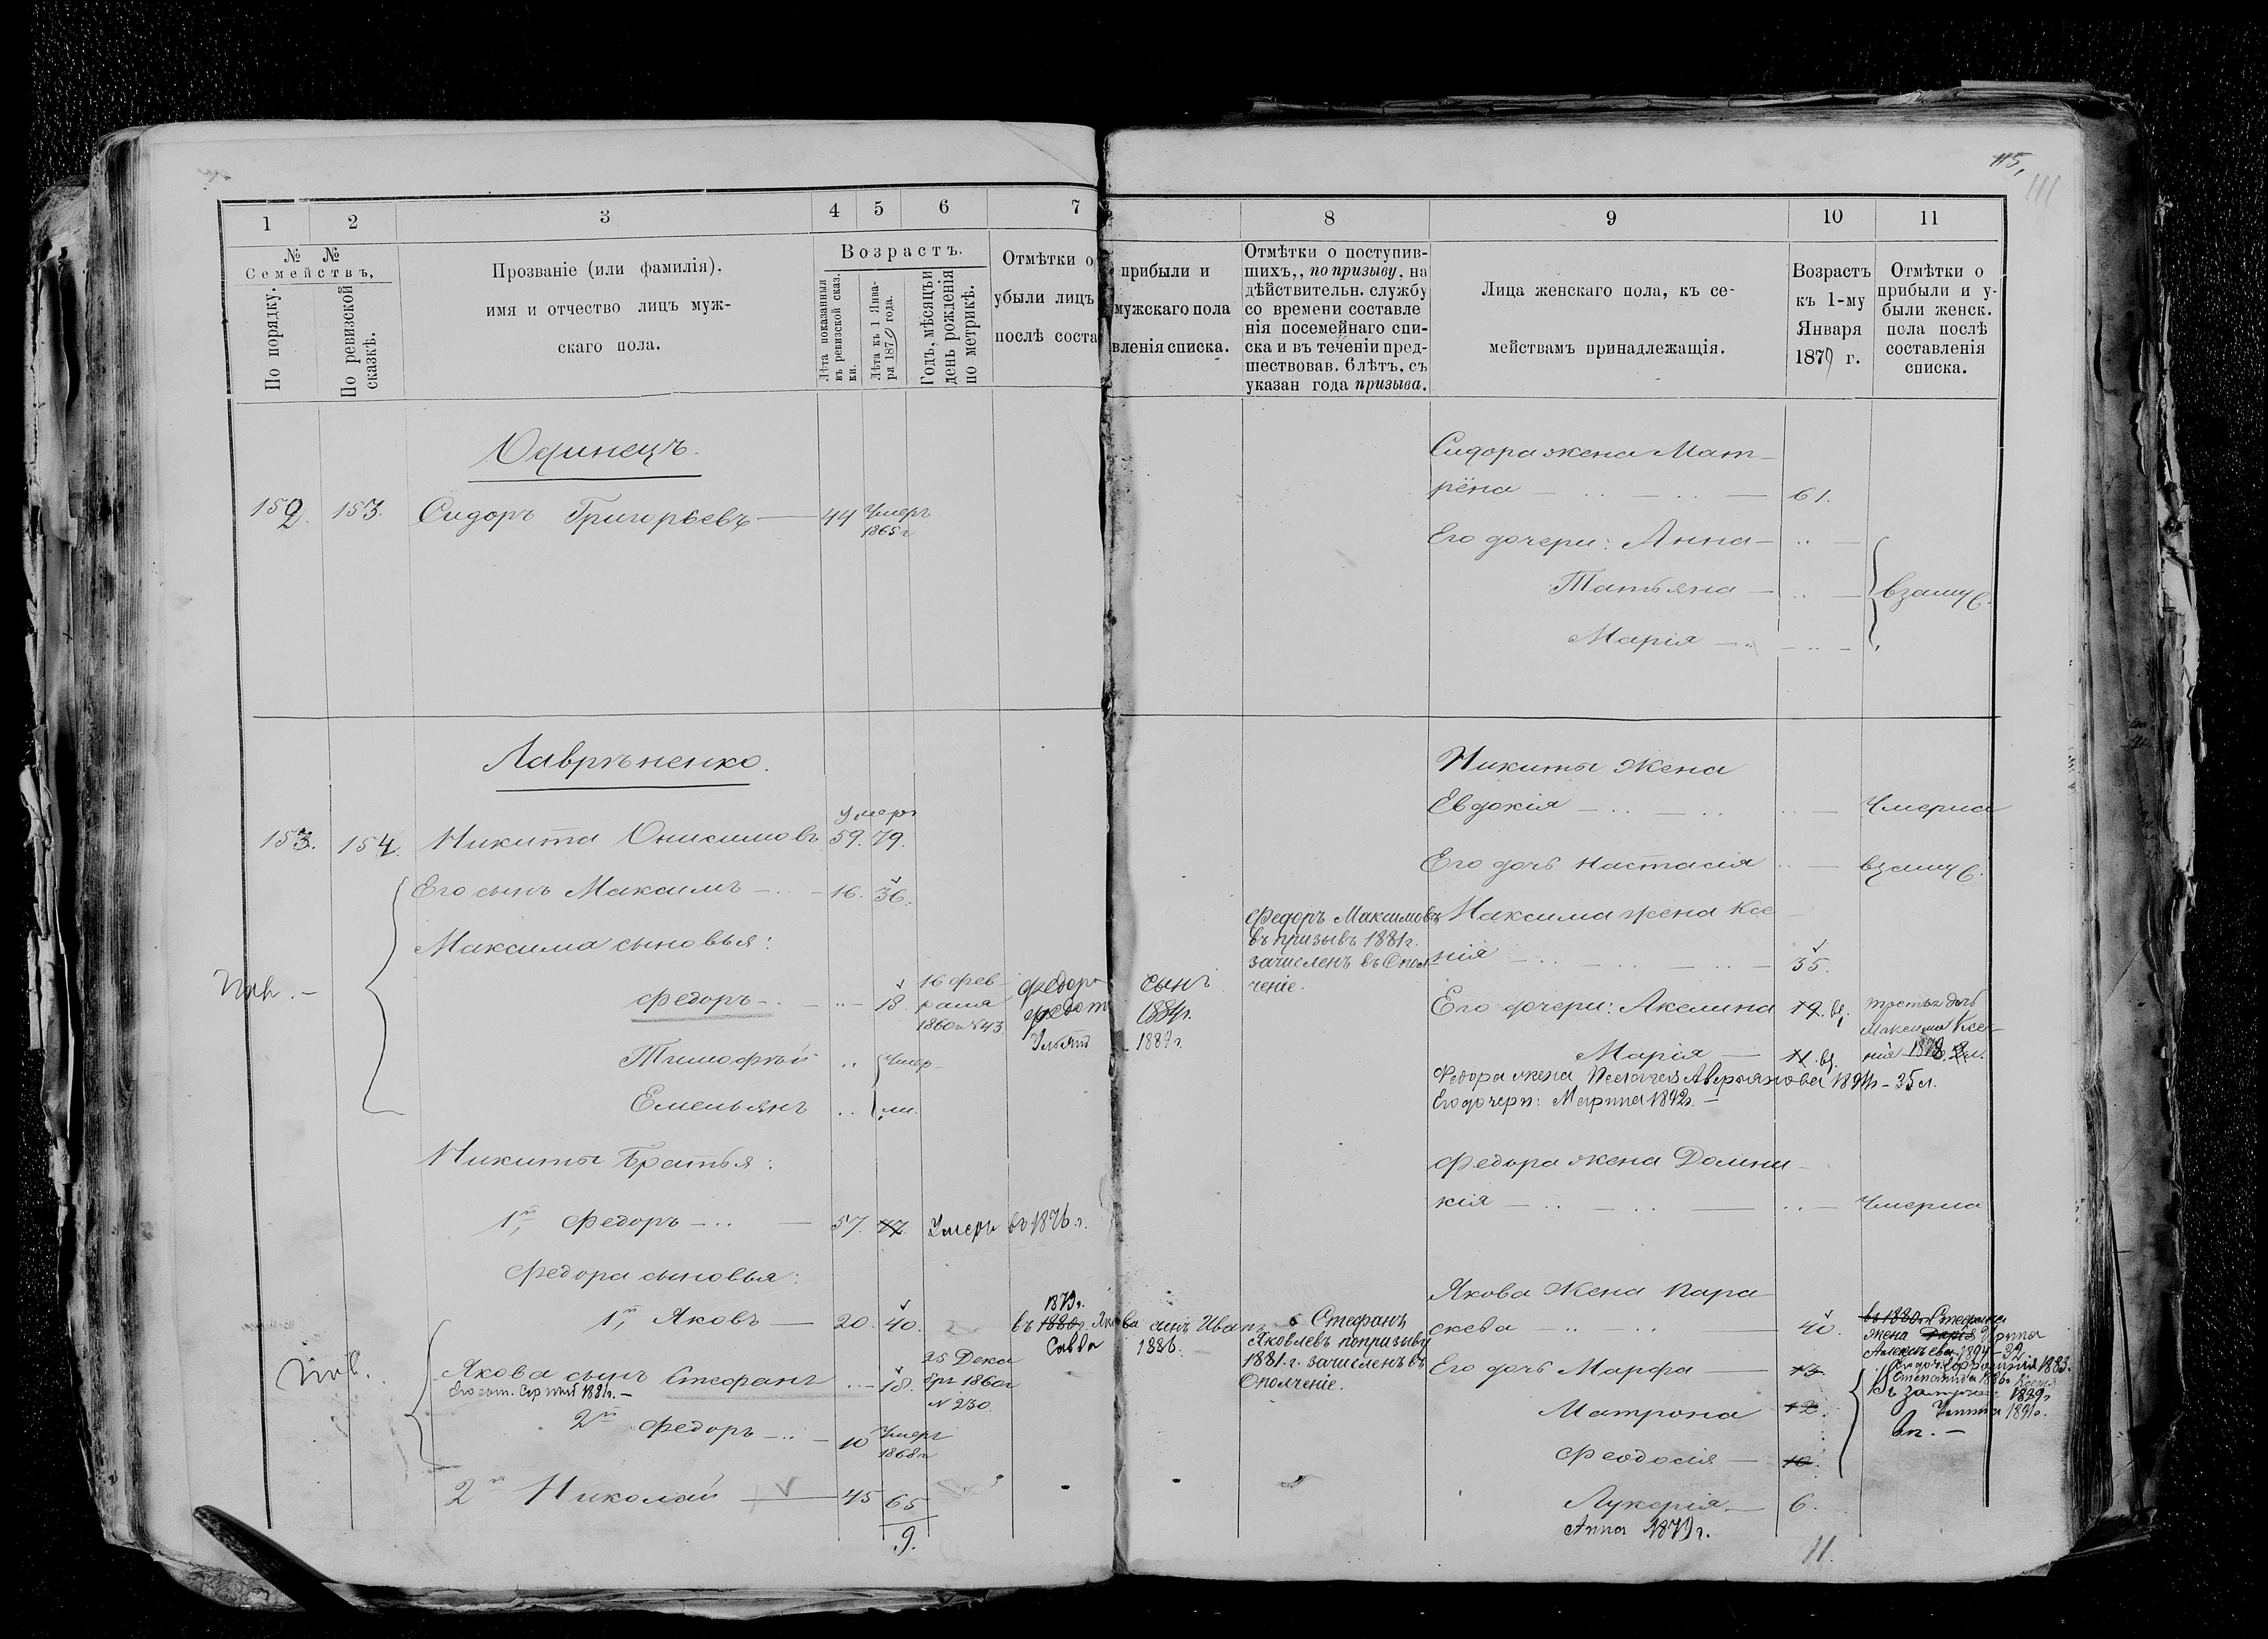 115,
111
1 2 3 4 5 6 7
№ №
Семействъ,
По порядку.
По ревизской сказкѣ.
Прозваніе (или фамилія).
имя и отчество лицъ муж-
скаго пола.
Возрастъ.
Лѣта показанныя въ ревизской сказ.ки.
Лѣта къ 1 Янва-ря 1879 года.
Годъ, мѣсяцъ и день рожденія по метрикѣ.
Отмѣтки о
убыли лицъ
послѣ соста
Одинецъ.
152. 153. Сидоръ Григорьевъ — 44 Умеръ
1865 г
Лавръненко.
Умеръ
153. 154. Никита Онисимовъ 59. 79.
Его сынъ Максимъ — 16. 36.
Максима сыновья:
Федоръ — 18. 16 фев-
раля
1860 г №43.
Федоръ
Федот
Тимофѣй .. Умер-
Емельянъ .. ли.
Никиты братья:
1й, Федоръ — 57. 77. Умеръ въ 1876 г.
Федора сыновья:
1879 г.
1й, Яковъ — 20. 40. въ 1880 г. Яко
Савва
Якова сынъ Стефанъ .. 18. 25 Дека
бря 1860 г
№ 230.
Его сын. Сергѣй 1881 г. —
2й Федоръ — 10 Умеръ
1868 г
2й Николай — 45 65
9.
8 9 10 11
прибыли и
мужскаго пола
вленія списка.
Отмѣтки о поступив-
шихъ,, по призыву, на
дѣйствительн. службу
со времени составле
нія посемейнаго спи-
ска и въ теченіи пред-
шествовав. 6 лѣтъ, съ
указан года призыва.
Лица женскаго пола, къ се-
мействамъ принадлежащія.
Возрастъ
къ 1-му
Января
1879 г.
Отмѣтки о
прибыли и у-
были женск.
пола послѣ
составленія
списка.
Сидора жена Мат-
рёна — 61.
Его дочери: Анна —
Татьяна —
Марія —
взамуж.
Никиты жена
Евдокія — Умерла
Его дочь Настасія — взамуж.
Федоръ Максимовъ
въ призывъ 1881 г.
зачисленъ въ Опол-
ченіе.
Максима жена Ксе
нія — 35.
сынъ
1884 г.
1889 г.
Его дочери: Акелина 12.
третья дочь
Максима Ксе-
нія 1878
Марія — 11.
Федора жена Пелагея Аверьянова 1894 г - 35 л.
Его дочери: Марина 1892 г. —
Федора жена Домни-
кія — Умерла
Якова жена Пара
скева — 40.
ва сынъ Иван
1886.
Стефанъ
Яковлевъ попризыву
1881. г. зачисленъ въ
Ополченіе.
въ 1880 г Стефана
жена Дарія Ирина
Алексѣева. 1894 - 32
Его дочь Марфа —
Матрона 12.
Феодосія — 10.
Лукерія — 6.
Анна 1879 г.
11.